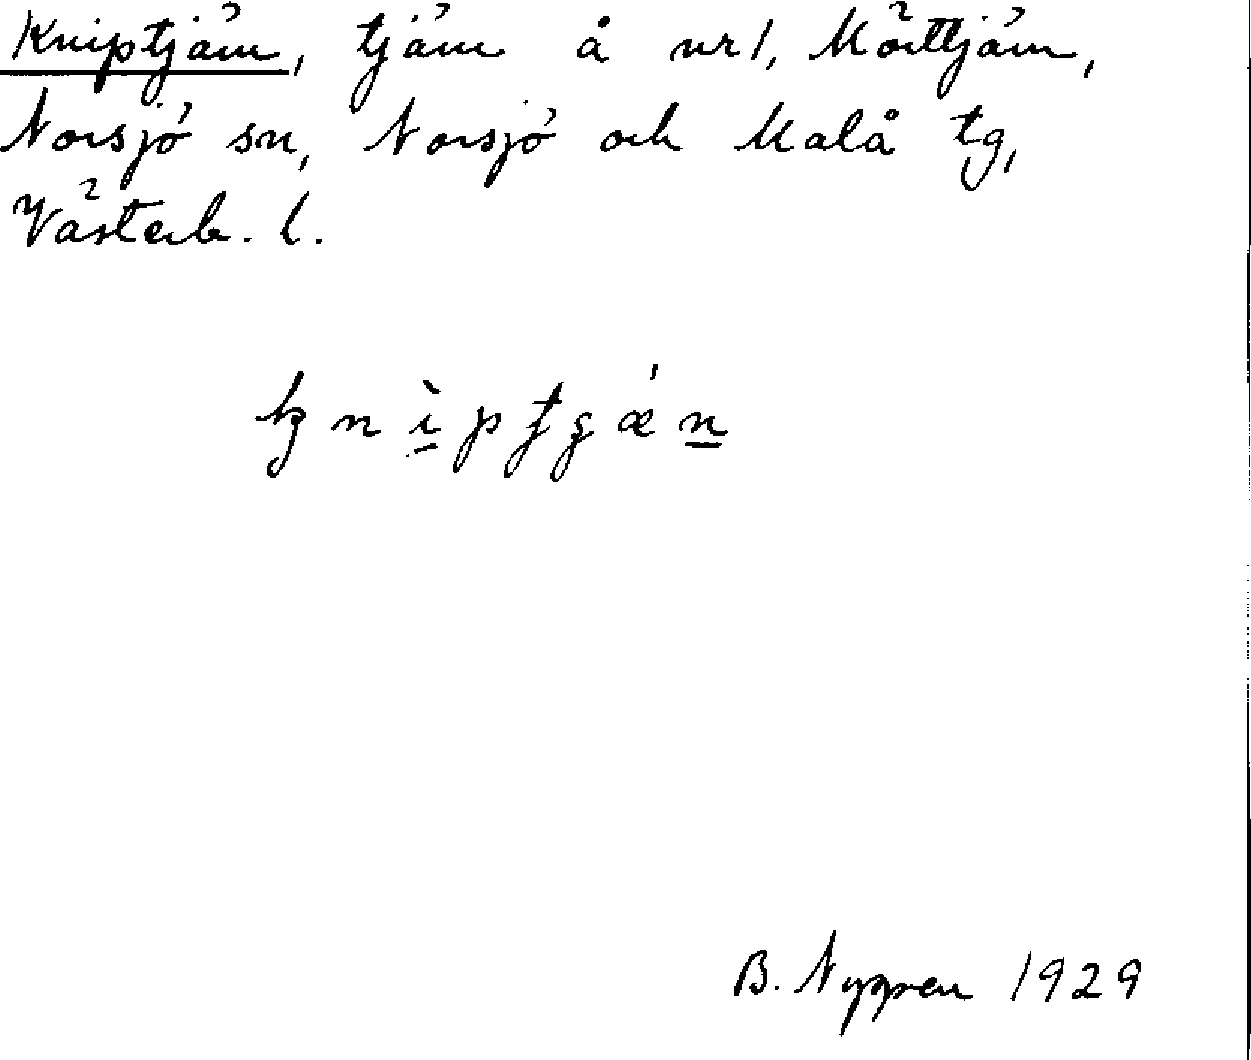 Kniptjärn, tjärn å nr 1, Mörttjärn,
Norsjö sn, Norsjö och Malå tg,
Västerb. l.
B. Nygren 1929